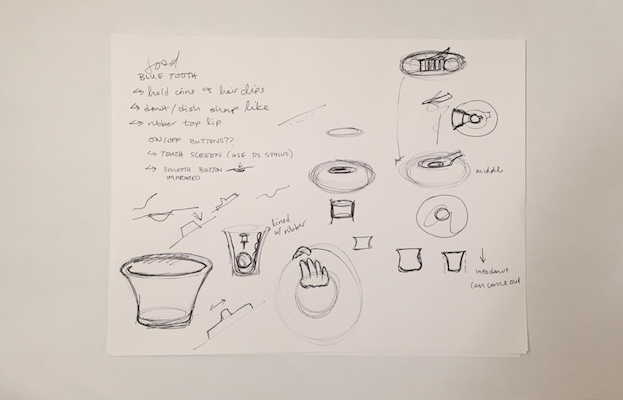 food
BLUE TOOTH
↳ hold coins & hair clips
↳ donut/dish shape like
↳ rubber top lip
ON/OFF BUTTONS??
↳ TOUCH SCREEN (USE DS STYLUS)
↳ SMOOTH BUTTON
IMPRINTED
middle
lined
w/ rubber
into donut
can come out